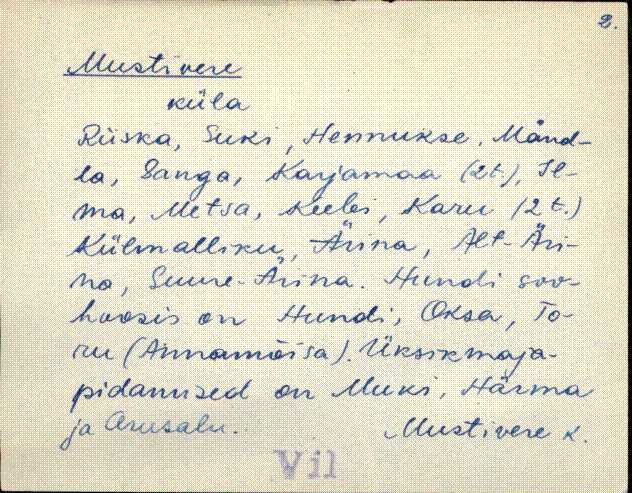 2.
Mustivere
küla
Riiska, Suki, Hennukse, Mänd-
la, Sanga, Karjamaa (2 t.), Il-
ma, Metsa, Keebi, Karu (2 t.)
Külmalliku, Ärina, Alt-Äri-
na, Suure-Ärina. Hundi soo-
hoosis on Hundi, Oksa, To-
ru (Annamõisa). Üksikmaja-
pidamised on Muki, Härma
ja Arusalu.
Mustivere k.
Vil